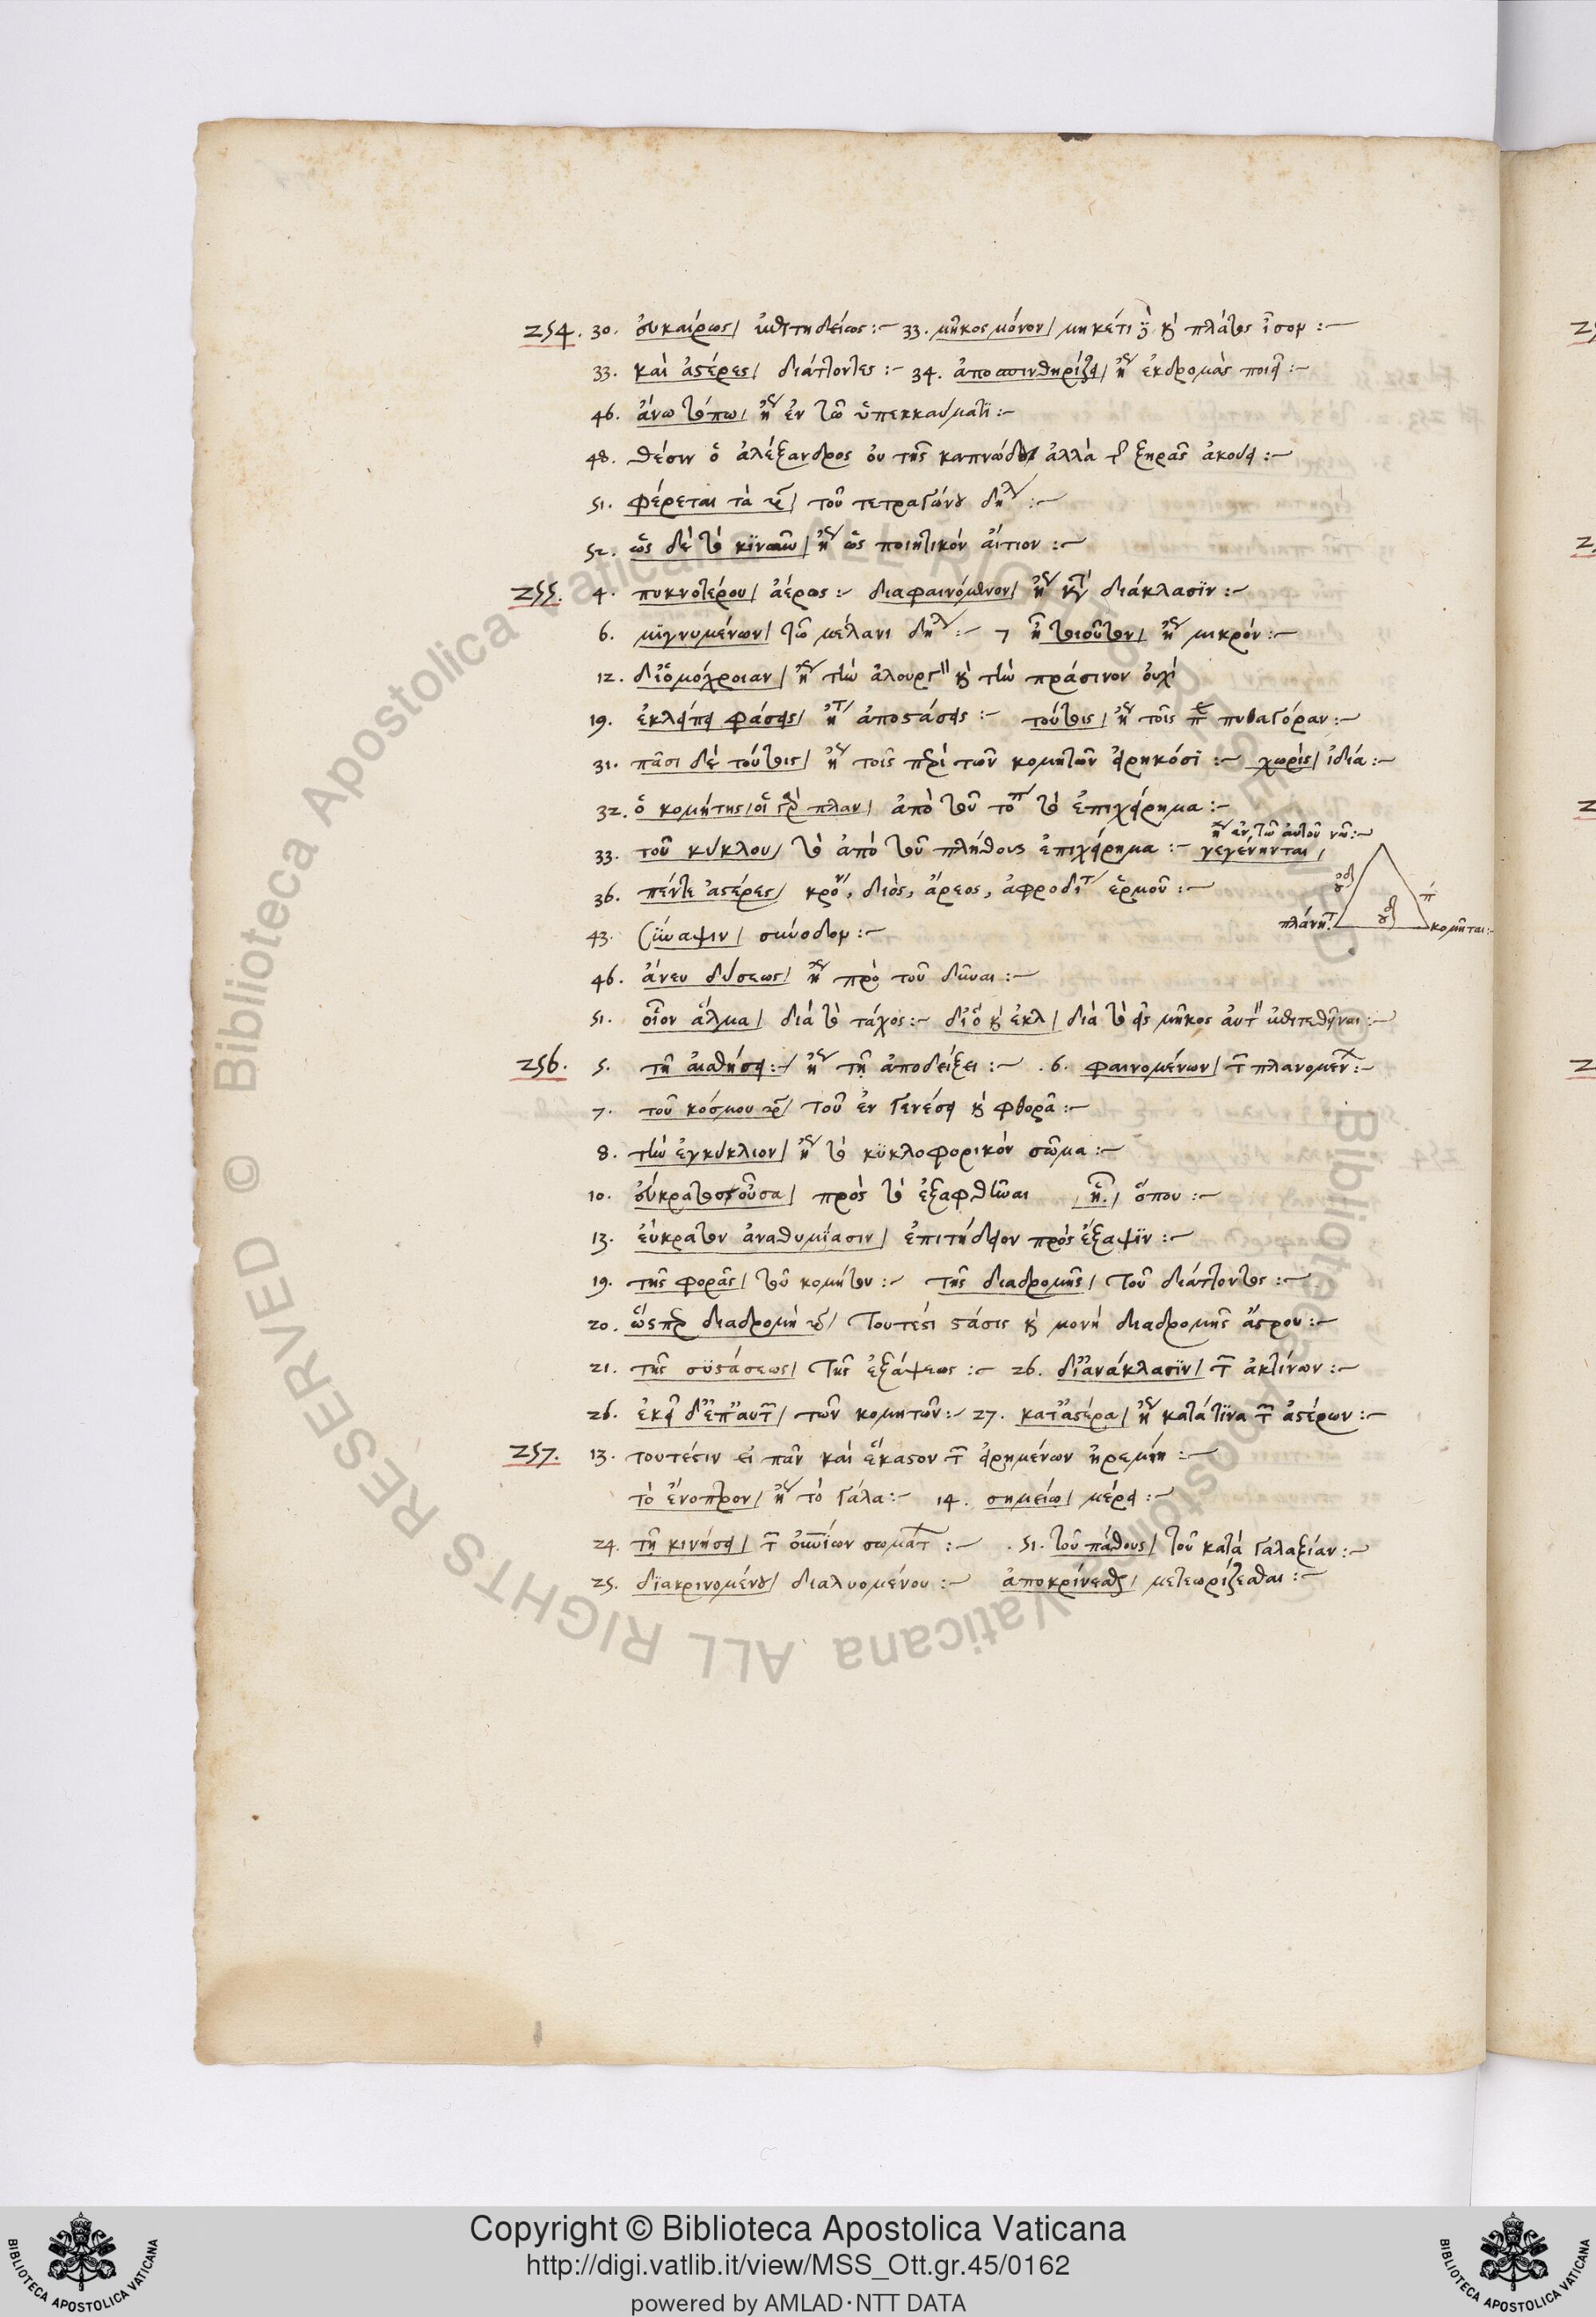 254. 30. εὐκαίρως/ ἐπιτηδείως :~ 33. μῆκος μόνον/ μηκέτι δὲ καὶ πλάτος ἴσον :~
33. καὶ ἀστέρες/ διάττοντες :~ 34. ἀποσπινθηρίζει/ ἤγ ἐκδρομὰς ποιεῖ :~
46. ἄνω τόπω/ ἤγ ἐν τῶ ὑπεκκαύματι :~
48. θέσιν ὁ ἀλέξανδρος οὐ τῆς καπνώδους ἀλλὰ τῆς ξηρᾶς ἀκούει :~
51. φέρεται τὰ / τοῦ τετραγώνου δηλ :~
52. ὡς δὲ τὸ κινοῦν/ ἤγ ὡς ποιητικὸν αἴτιον :~
255. 4. πυκνοτέρου/ ἀέρος :~ διαφαινόμενον/ ἤγ κατὰ διάκλασιν :~
6. μιγνυμένων/ τῶ μέλανι δηλ :~ 7 ἢ τοιοῦτον/ ἤγ μικρόν :~
12. δι' ὁμόχροιαν/ ἤγ τὴν ἁλουργ καὶ τὴν πράσινον οὐχί
19. ἐκλείπει φάσεις/ ἤτ ἀποστάσεις :~ τούτοις/ ἤγ τοῖς π πυθαγόραν :~
31. πᾶσι δὲ τούτοις/ ἤγ τοῖς περὶ τῶν κομητῶν εἰρηκόσι :~ χωρίς/ ἰδία :~
32. ὁ κομήτης/ οἱ γὰρ πλαν/ ἀπὸ τοῦ τοπ τὸ ἐπιχείρημα :~
ἤγ ἐν τῶ αὐτοῦ νῶ :~
33. τοῦ κύκλου/ τὸ ἀπὸ τοῦ πλήθους ἐπιχείρημα :~ γεγένηνται/
36. πέντε ἀστέρες/ κρόν, διὸς, ἄρεος, ἀφροδίτ ἑρμοῦ :~
οὐδ π
πλάνητ οὐδ κομῆται :~
43. σύναψιν/ σύνοδον :~
46. ἄνευ δύσεως/ ἤγ πρὸ τοῦ δῦναι :~
51. οἷον ἅλμα/ διὰ τὸ τάχος :~ διὸ καὶ ἐκλ/ διὰ τὸ εἰς μῆκος αὐτ ἐπιτεθῆναι :~
256. 5. τῆ αἰσθήσει :~/ ἤγ τῆ ἀποδείξει :~ .6. φαινομένων/ τ πλανομεν :~
7. τοῦ κόσμου / τοῦ ἐν γενέσει καὶ φθορᾶ :~
8. τὴν ἐγκύκλιον/ ἤγ τὸ κυκλοφορικὸν σῶμα :~
10. εὔκρατος οὖσα/ πρὸς τὸ ἐξαφθῆναι / ἧ./ ὅπου :~
13. εὔκρατον ἀναθυμίασιν/ ἐπιτήδειον πρὸς ἔξαψιν :~
19. τῆς φορᾶς/ τοῦ κομήτου :~ τῆς διαδρομῆς/ τοῦ διάττοντος :~
20. ὥσπερ διαδρομὴ / τουτέστι στάσις καὶ μονὴ διαδρομῆς ἄστρου :~
21. τῆς συστάσεως/ τῆς ἐξάψεως :~ 26. δι' ἀνάκλασιν/ τ ἀκτίνων :~
26. ἐκεῖ δ' ἐπ' αυτ/ τῶν κομητῶν :~ 27. κατ' ἀστέρα/ ἤγ κατά τινα τ ἀστέρων :~
257. 13. τουτέστιν εἰ πᾶν καὶ ἕκαστον τ εἰρημένων ἠρεμίη :~
τὸ ἔνοπτρον/ ἤγ τὸ γάλα :~ 14. σημείω/ μέρει :~
24. τῆ κινήσει/ τ οὐνίων σωματ :~ .51. τοῦ πάθους/ τοῦ κατὰ γαλαξίαν :~
25. διακρινομένου/ διαλυομένου :~ ἀποκρίνεσθαι/ μετεωρίζεσθαι :~
© Biblioteca Apostolica Vaticana ALL RIGHTS RESERVED
Copyright © Biblioteca Apostolica Vaticana
http://digi.vatlib.it/view/MSS_Ott.gr.45/0162
powered by AMLAD·NTT DATA
BIBLIOTECA APOSTOLICA VATICANA
BIBLIOTECA APOSTOLICA VATICANA